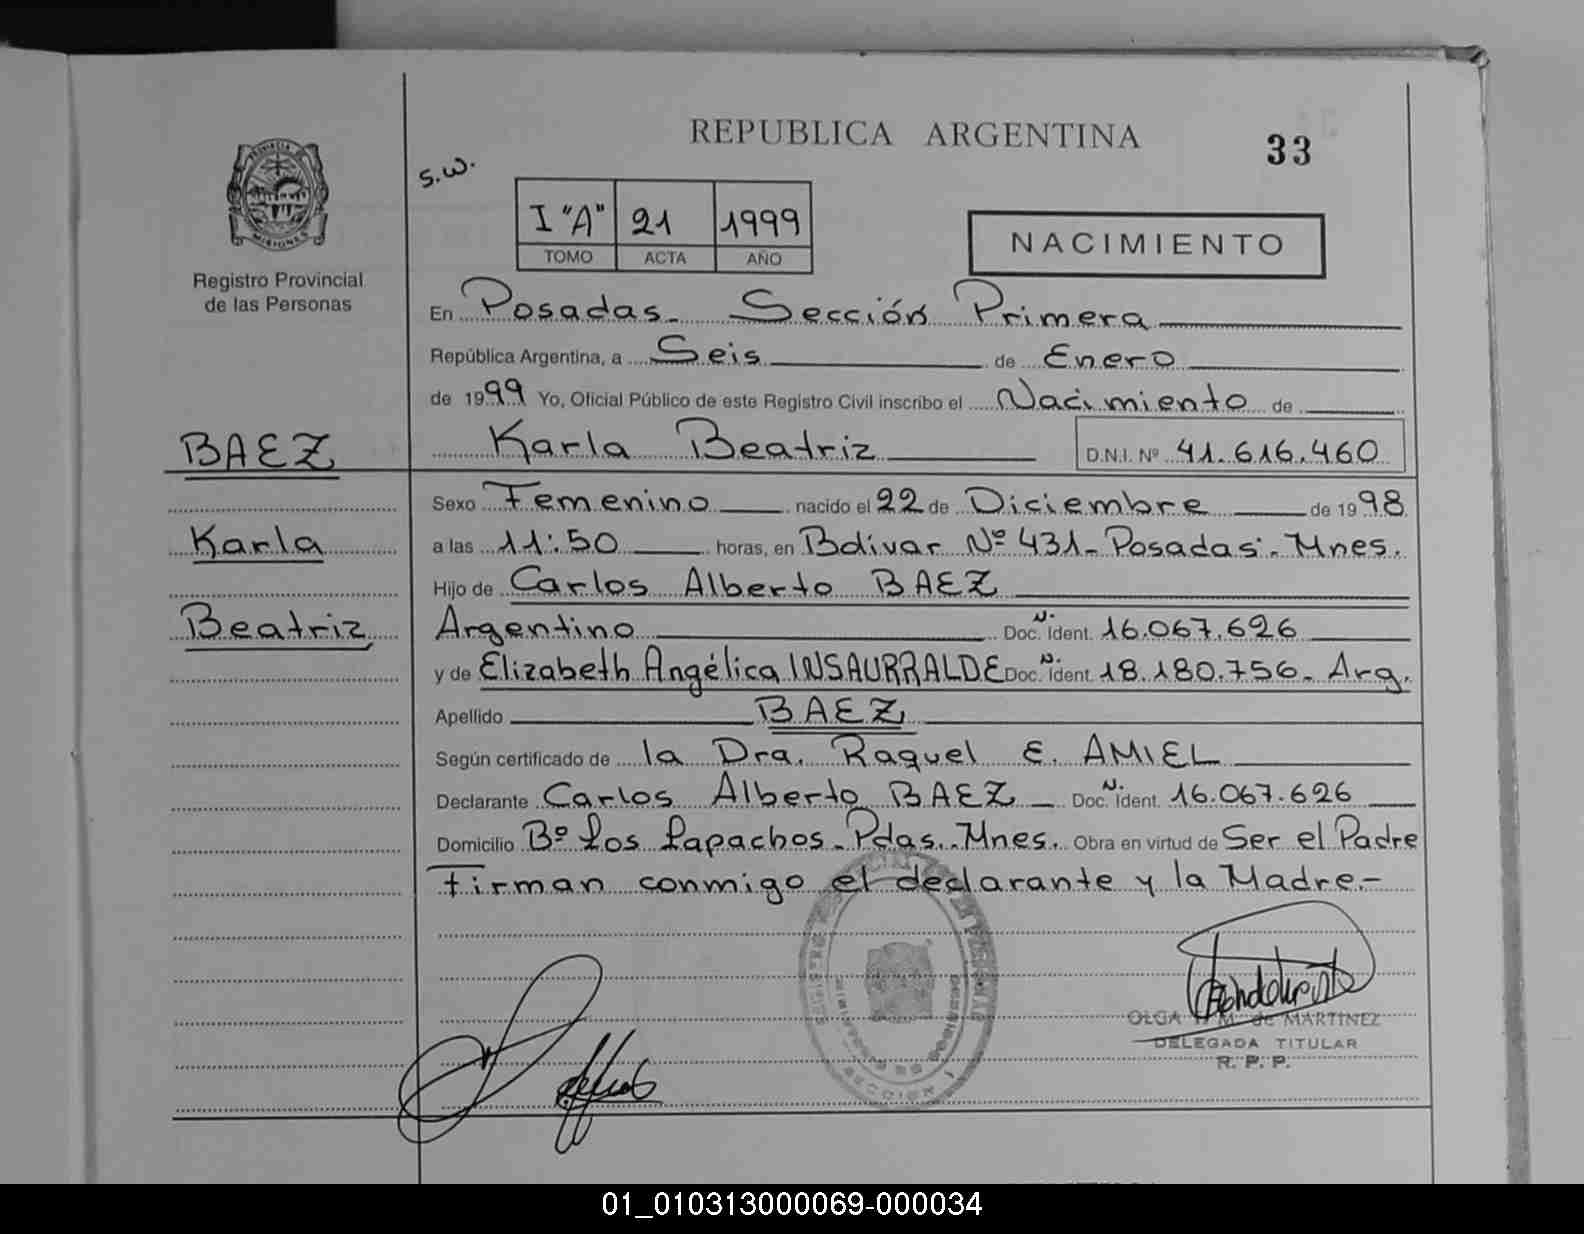 REPUBLICA ARGENTINA
33
s.w.
PROVINCIA
MISIONES
Registro Provincial
de las Personas
I "A" 21 1999
TOMO ACTA AÑO
NACIMIENTO
En Posadas. Sección Primera
República Argentina, a Seis de Enero
de 1999 Yo, Oficial Público de este Registro Civil inscribo el Nacimiento de
BAEZ
Karla Beatriz D.N.I. Nº 41.616.460
Sexo Femenino nacido el 22 de Diciembre de 1998
Karla
a las 11:50 horas, en Bolivar Nº 431- Posadas. Mnes.
Hijo de Carlos Alberto BAEZ
Beatriz
Argentino Doc. N. Ident. 16.067.626
y de Elizabeth Angélica INSAURRALDE Doc. N. Ident. 18.180.756- Arg.
Apellido BAEZ
Según certificado de la Dra. Raquel E. AMIEL
Declarante Carlos Alberto BAEZ Doc. N. Ident. 16.067.626
Domicilio Bº Los Lapachos. Pdas. Mnes. Obra en virtud de Ser el Padre
Firman conmigo el declarante y la Madre.-
SECCION 1
OLGA M. de MARTINEZ
DELEGADA TITULAR
R. P. P.
01_010313000069-000034